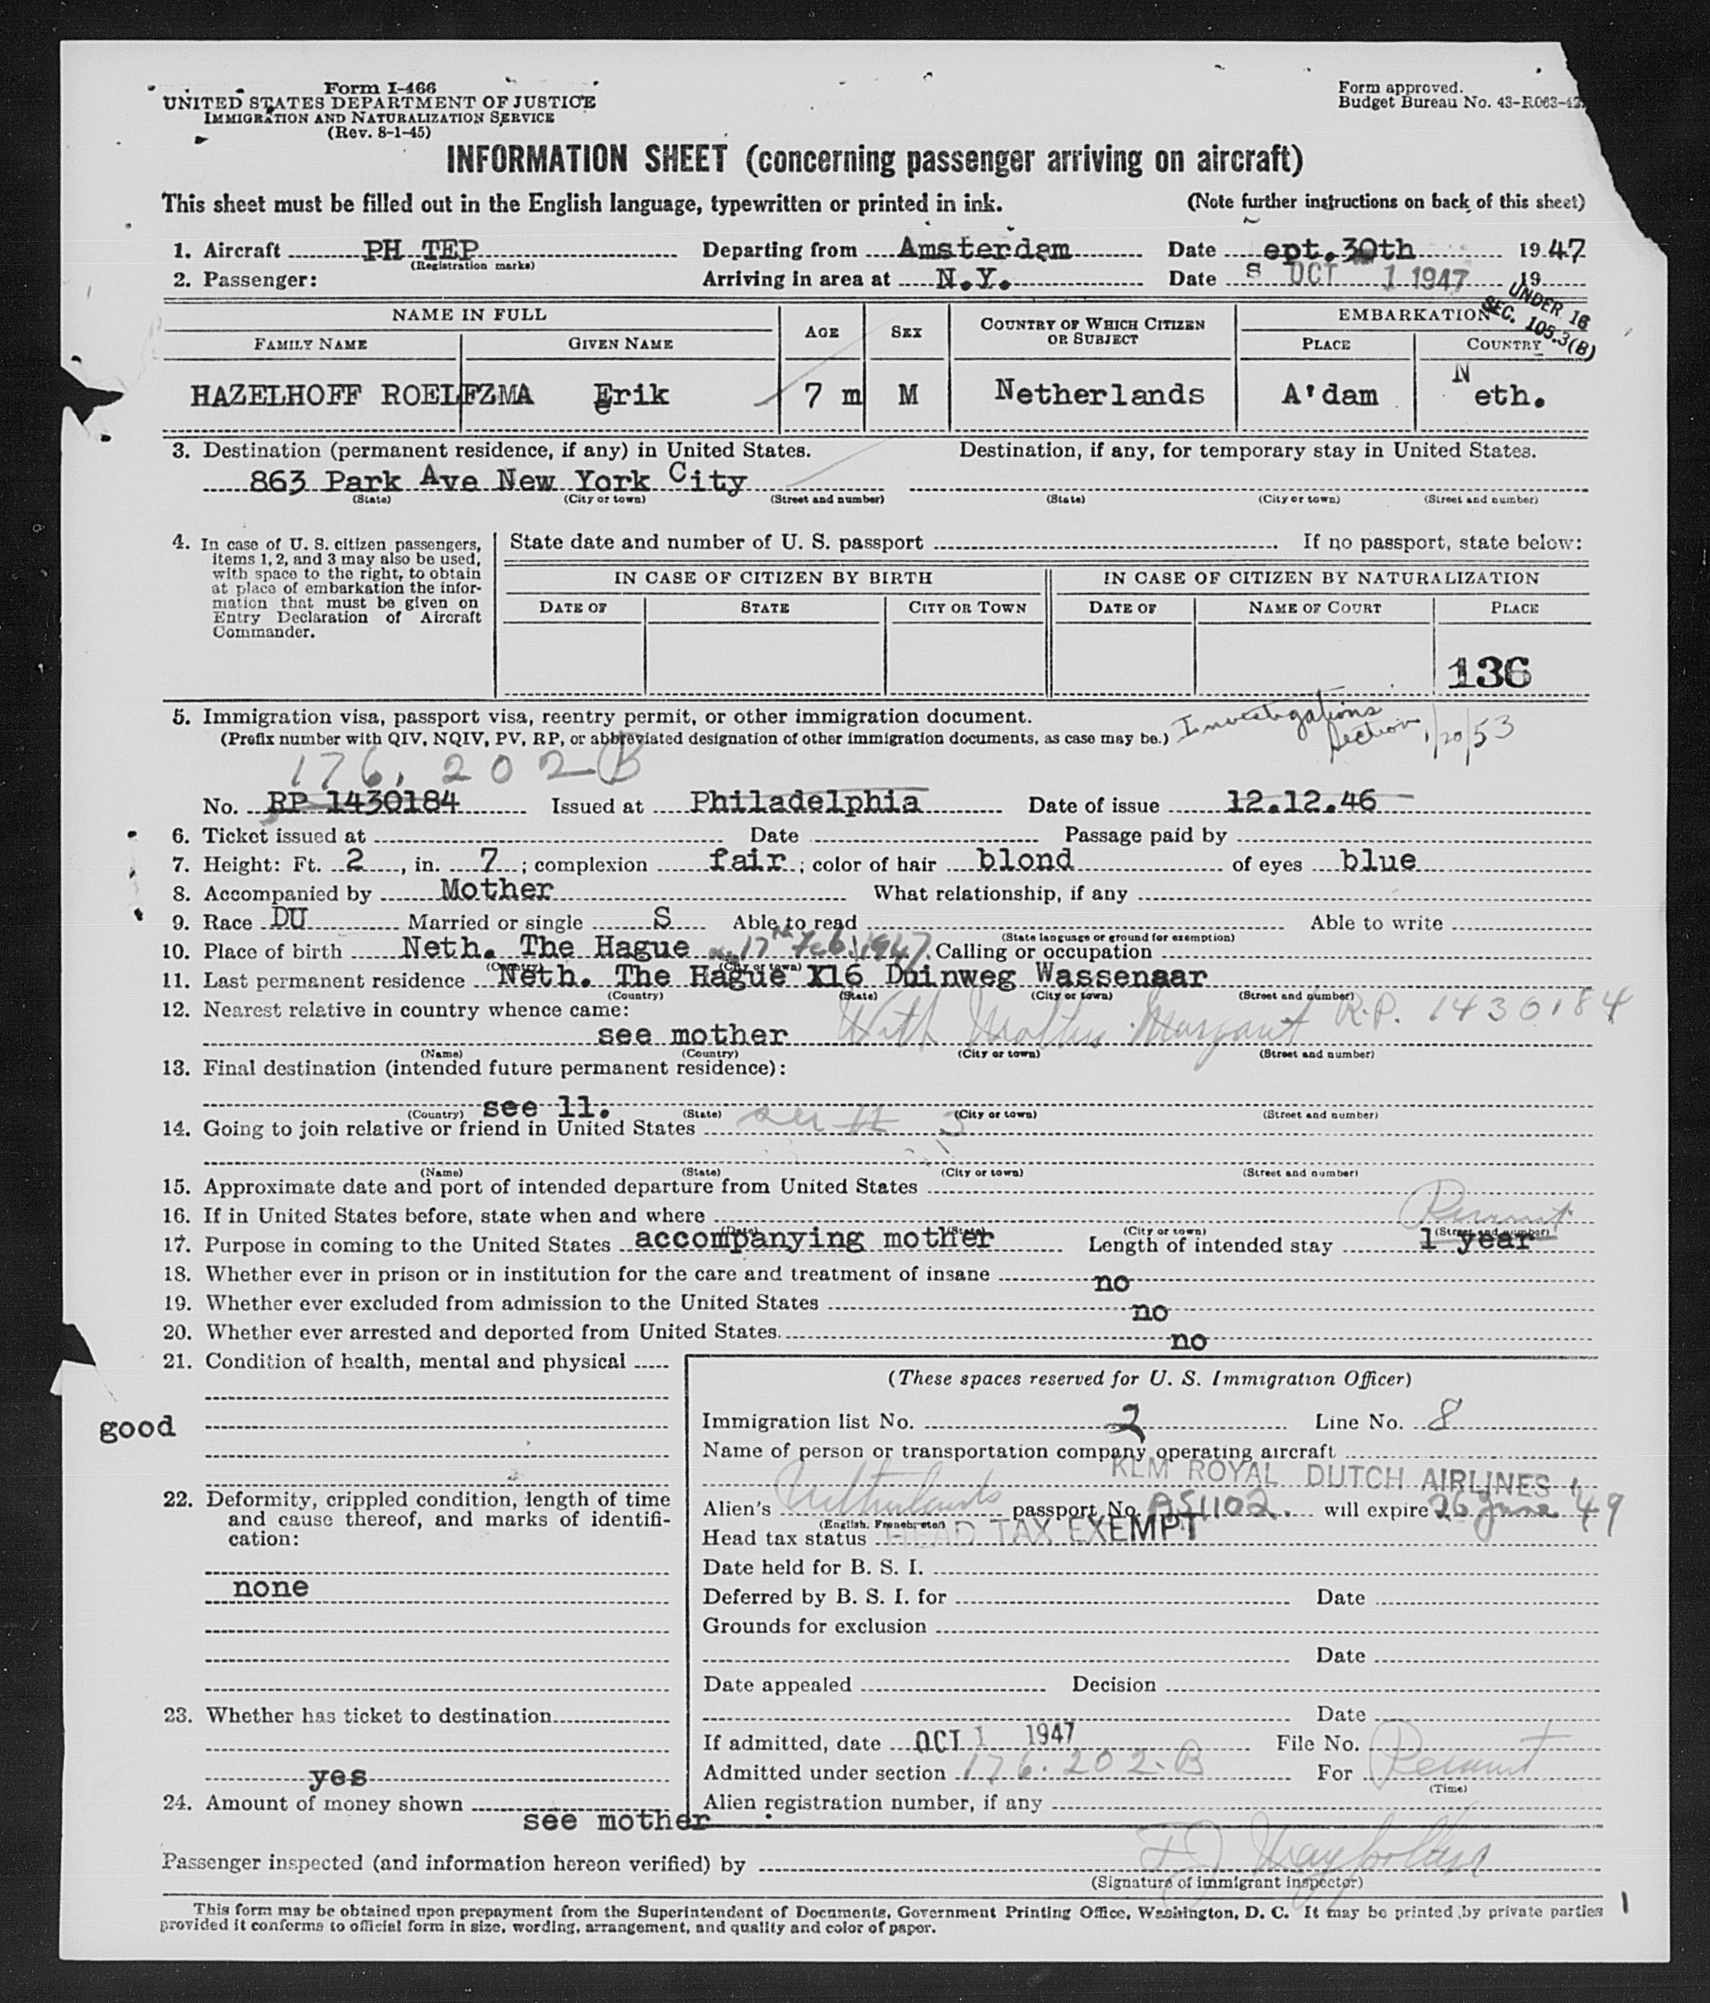 Form I-466
UNITED STATES DEPARTMENT OF JUSTICE
IMMIGRATION AND NATURALIZATION SERVICE
(Rev. 8-1-45)
Form approved.
Budget Bureau No. 43-R063-42
INFORMATION SHEET (concerning passenger arriving on aircraft)
This sheet must be filled out in the English language, typewritten or printed in ink. (Note further instructions on back of this sheet)
1. Aircraft PH TEP Departing from Amsterdam Date ept.30th 1947
(Registration marks)
2. Passenger: Arriving in area at N.Y. Date S OCT 1 1947 19
UNDER 16
SEC. 105.3(B)
NAME IN FULL AGE SEX COUNTRY OF WHICH CITIZEN OR SUBJECT EMBARKATION
FAMILY NAME GIVEN NAME PLACE COUNTRY
HAZELHOFF ROELFZMA Erik 7 m M Netherlands A'dam Neth.
3. Destination (permanent residence, if any) in United States. Destination, if any, for temporary stay in United States.
863 Park Ave New York City
(State) (City or town) (Street and number) (State) (City or town) (Street and number)
4. In case of U. S. citizen passengers, items 1, 2, and 3 may also be used, with space to the right, to obtain at place of embarkation the information that must be given on Entry Declaration of Aircraft Commander.
State date and number of U. S. passport If no passport, state below:
IN CASE OF CITIZEN BY BIRTH IN CASE OF CITIZEN BY NATURALIZATION
DATE OF STATE CITY OR TOWN DATE OF NAME OF COURT PLACE
136
5. Immigration visa, passport visa, reentry permit, or other immigration document.
(Prefix number with QIV, NQIV, PV, RP, or abbreviated designation of other immigration documents, as case may be.)
Investigations Section 1/20/53
176.202B
No. RP 1430184 Issued at Philadelphia Date of issue 12.12.46
6. Ticket issued at Date Passage paid by
7. Height: Ft. 2, in. 7; complexion fair; color of hair blond of eyes blue
8. Accompanied by Mother What relationship, if any
9. Race DU Married or single S Able to read Able to write
(State language or ground for exemption)
10. Place of birth Neth. The Hague 17th Feb. 1947. Calling or occupation
(Country) (City or town)
11. Last permanent residence Neth. The Hague X16 Duinweg Wassenaar
(Country) (State) (City or town) (Street and number)
12. Nearest relative in country whence came:
see mother With Mother Margaret R.P. 1430184
(Name) (Country) (City or town) (Street and number)
13. Final destination (intended future permanent residence):
see 11.
(Country) (State) (City or town) (Street and number)
14. Going to join relative or friend in United States see # 3
(Name) (State) (City or town) (Street and number)
15. Approximate date and port of intended departure from United States
16. If in United States before, state when and where
(Date) (State) (City or town) (Street and number)
Permnt
17. Purpose in coming to the United States accompanying mother Length of intended stay 1 year
18. Whether ever in prison or in institution for the care and treatment of insane no
19. Whether ever excluded from admission to the United States no
20. Whether ever arrested and deported from United States. no
21. Condition of health, mental and physical
good
22. Deformity, crippled condition, length of time and cause thereof, and marks of identification:
none
23. Whether has ticket to destination
yes
24. Amount of money shown
see mother
(These spaces reserved for U. S. Immigration Officer)
Immigration list No. 2 Line No. 8
Name of person or transportation company operating aircraft
KLM ROYAL DUTCH AIRLINES
Alien's Netherlands passport No. A51102. will expire 26 June 49
(English, French, etc.)
Head tax status HEAD TAX EXEMPT
Date held for B. S. I.
Deferred by B. S. I. for Date
Grounds for exclusion
Date
Date appealed Decision
Date
If admitted, date OCT 1 1947 File No.
Admitted under section 176.202.B For Permnt
(Time)
Alien registration number, if any
Passenger inspected (and information hereon verified) by
(Signature of immigrant inspector)
This form may be obtained upon prepayment from the Superintendent of Documents, Government Printing Office, Washington, D. C. It may be printed by private parties
provided it conforms to official form in size, wording, arrangement, and quality and color of paper.
1